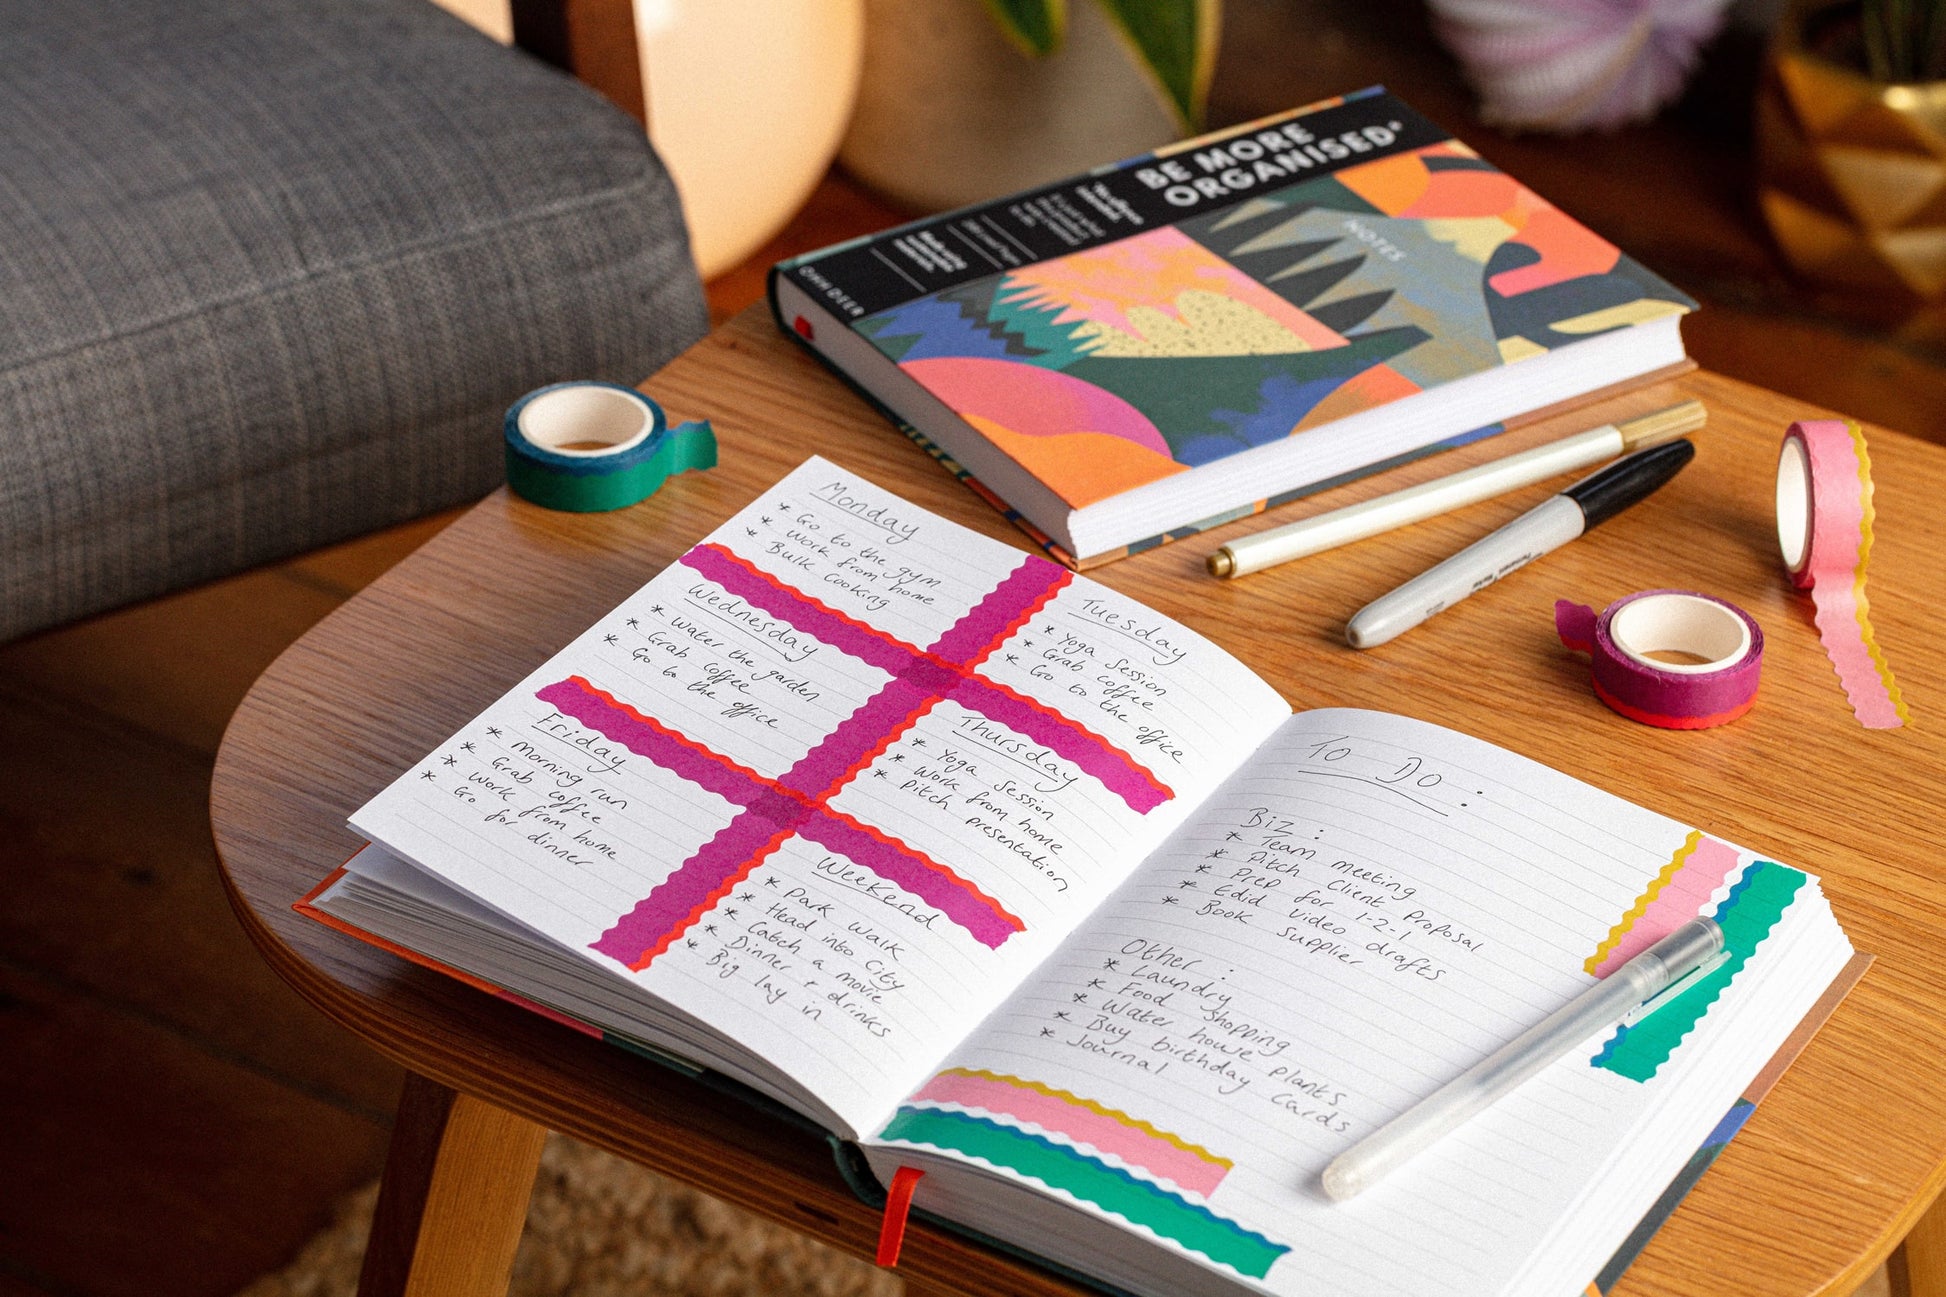 BE MORE
ORGANISED
NOTES
OHH DEER
Monday
* Go to the gym
* Work from home
* Bulk Cooking
Tuesday
* Yoga Session
* Grab coffee
* Go to the office
Wednesday
* Water the garden
* Grab coffee
* Go to the office
Thursday
* Yoga Session
* Work from home
* Pitch
presentation
Friday
* Morning run
* Grab coffee
* Work from home
* Go for dinner
Weekend
* Park walk
* Head into City
* Catch a movie
* Dinner + drinks
* Big lay in
To Do :
Biz :
* Team meeting
* Pitch Client Proposal
* Prep for 1-2-1
* Edid video drafts
* Book
Supplier
Other :
* Laundry
* Food Shopping
* Water house Plants
* Buy birthday Cards
* Journal